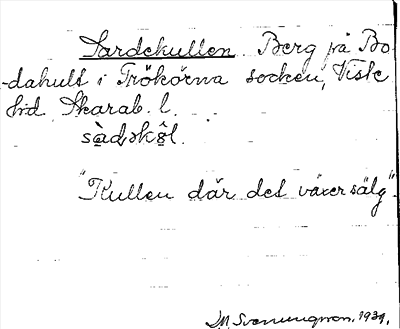 Sardekullen Berg på Bo-
dahult i Trökörna socken, Viste
hd Skarab. l.
sàdəkøl.
"Kullen där det växer sälg".
M. Svenungsson. 1939.